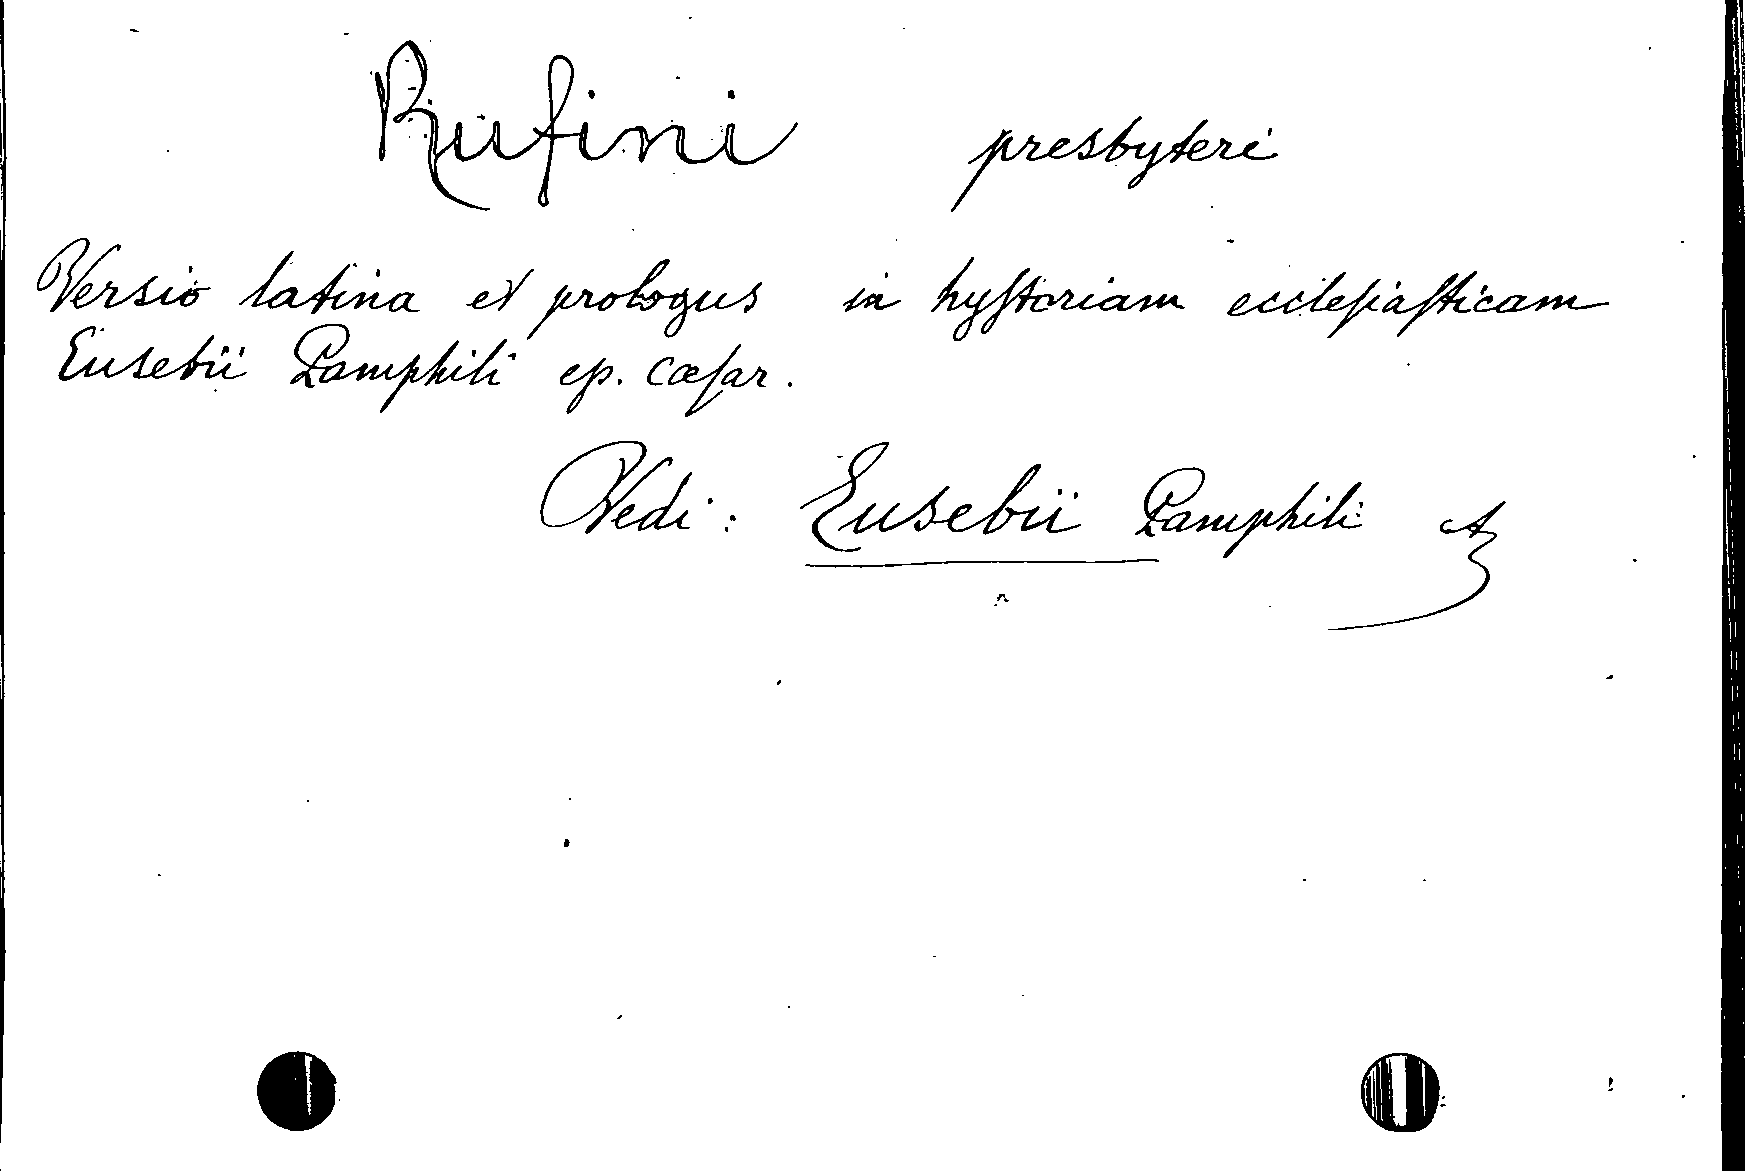 Rufini presbyteri
Versio latina et prologus in hyſtoriam eccleſiaſticam
Eusebii Pamphili ep. Cæſar.
Vedi: Eusebii Pamphili